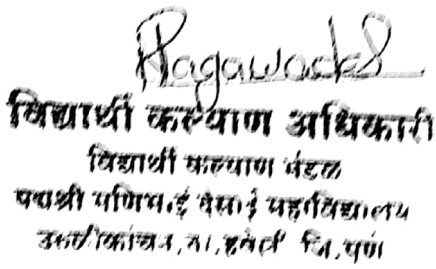 विद्यार्थी कल्याण अधिकारी
विद्यार्थी कल्याण मंडळ
पद्मश्री मणिभाई देसाई महाविद्यालय
उरुळीकांचन, ता. हवेली जि. पुणे